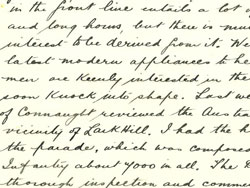 in the front line entails a lot o
and long hours but there is muc
interest to be derived from it. We
latest modern appliances to he
men are keenly interested in the
soon knock into shape. Last we
of Connaught reviewed the Austra
vicinity of Lark Hill. I had the h
the parade, which was composed
Infantry about 7000 in all. The D
thorough inspection and comm